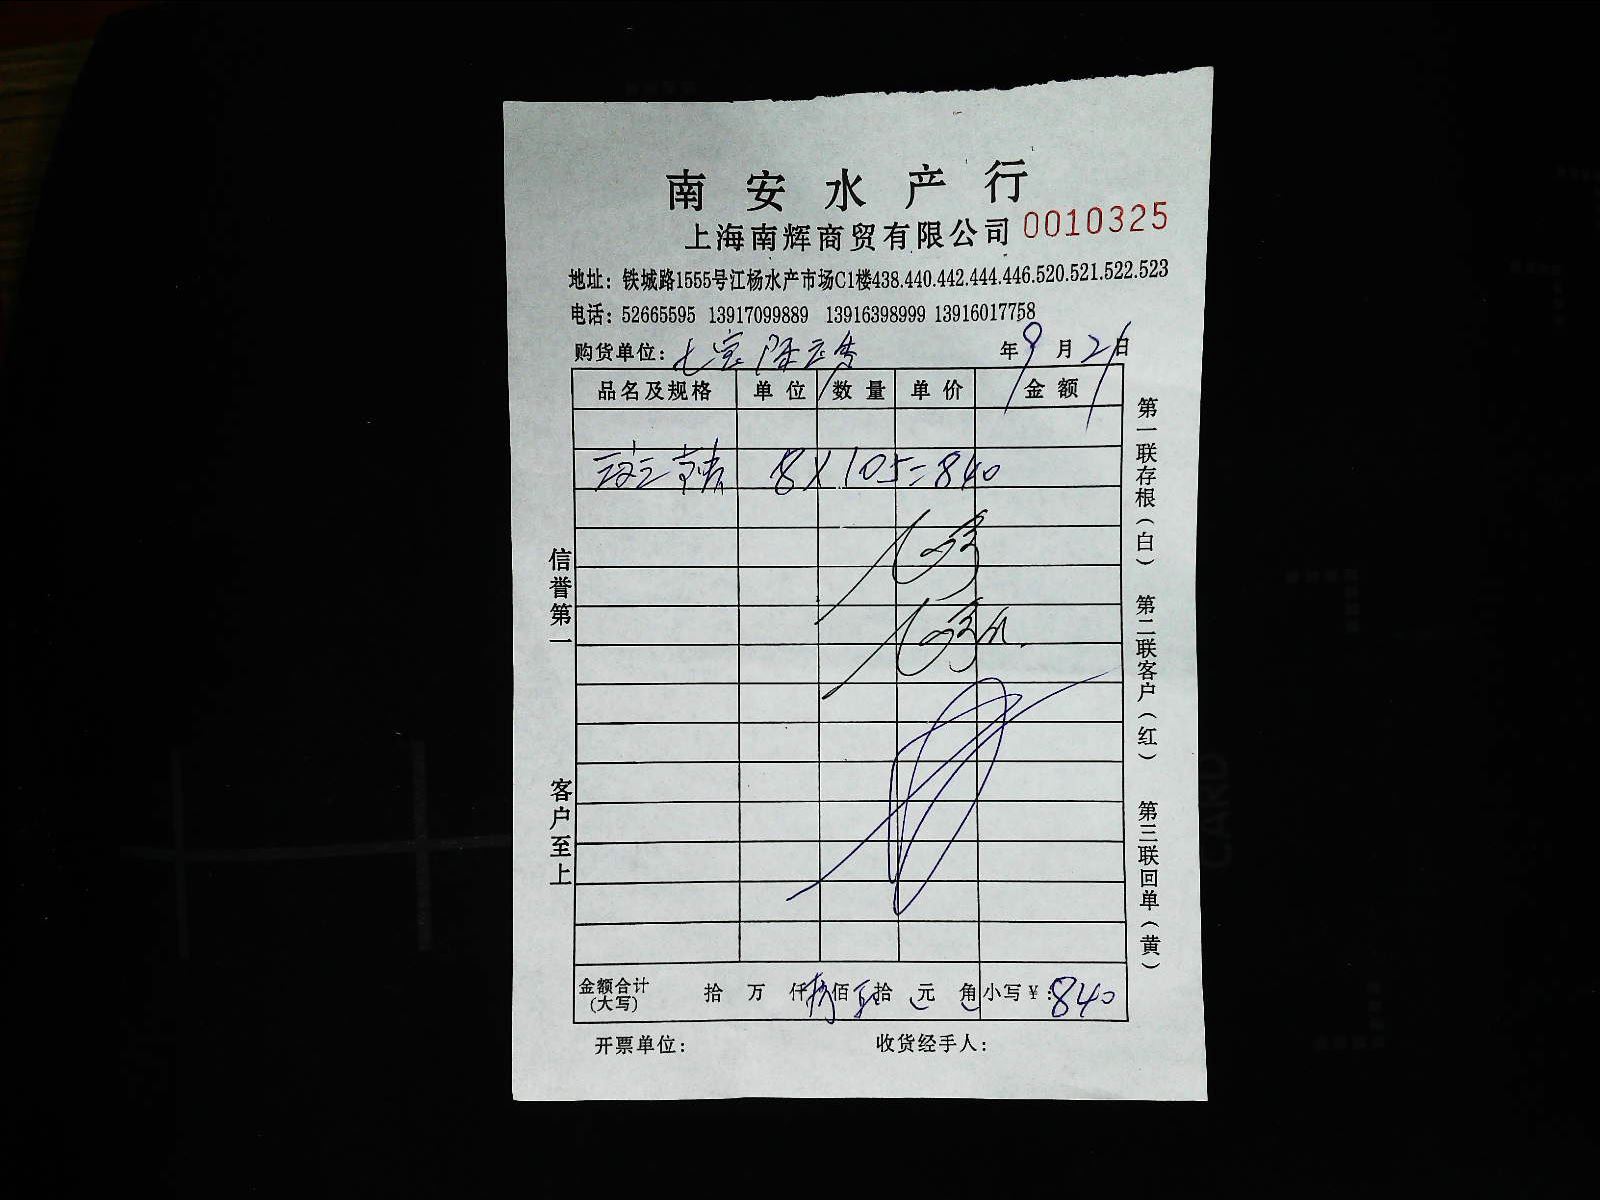 南安水产行
上海南辉商贸有限公司 0010325
地址：铁城路1555号江杨水产市场C1楼438.440.442.444.446.520.521.522.523
电话：52665595 13917099889 13916398999 13916017758
购货单位：七宝 年9月21日
品名及规格 单位 数量 单价 金额
8×105=840
信誉第一
客户至上
第一联存根（白） 第二联客户（红） 第三联回单（黄）
金额合计(大写) 拾 万 仟 捌佰 肆拾 元 角 小写¥：840
开票单位： 收货经手人：